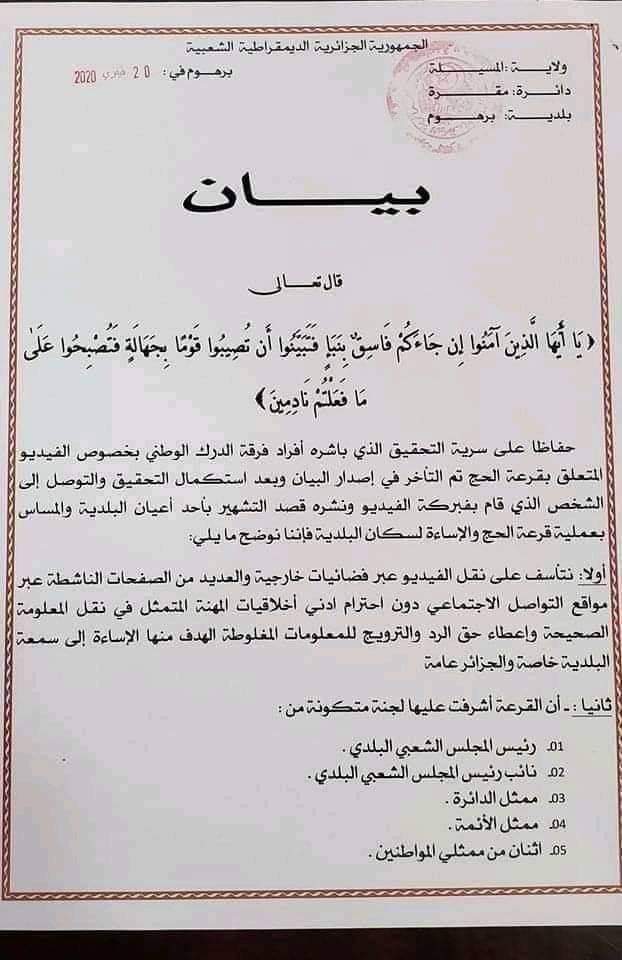 الجمهورية الجزائرية الديمقراطية الشعبية
ولاية: المسيلة
برهوم في: 20 فيفري 2020
دائرة: مقرة
بلدية: برهوم
بيـــــان
قال تعـالى
﴿ يَا أَيُّهَا الَّذِينَ آمَنُوا إِن جَاءَكُمْ فَاسِقٌ بِنَبَإٍ فَتَبَيَّنُوا أَن تُصِيبُوا قَوْمًا بِجَهَالَةٍ فَتُصْبِحُوا عَلَىٰ
مَا فَعَلْتُمْ نَادِمِينَ﴾
حفاظا على سرية التحقيق الذي باشره أفراد فرقة الدرك الوطني بخصوص الفيديو
المتعلق بقرعة الحج تم التأخر في إصدار البيان وبعد استكمال التحقيق والتوصل إلى
الشخص الذي قام بفبركة الفيديو ونشره قصد التشهير بأحد أعيان البلدية والمساس
بعملية قرعة الحج والإساءة لسكان البلدية فإننا نوضح ما يلي:
أولا: نتأسف على نقل الفيديو عبر فضائيات خارجية والعديد من الصفحات الناشطة عبر
مواقع التواصل الاجتماعي دون احترام ادني أخلاقيات المهنة المتمثل في نقل المعلومة
الصحيحة وإعطاء حق الرد والترويج للمعلومات المغلوطة الهدف منها الإساءة إلى سمعة
البلدية خاصة والجزائر عامة
ثانيا: ـ أن القرعة أشرفت عليها لجنة متكونة من :
01ـ رئيس المجلس الشعبي البلدي .
02ـ نائب رئيس المجلس الشعبي البلدي .
03ـ ممثل الدائرة .
04ـ ممثل الأئمة .
05ـ اثنان من ممثلي المواطنين .